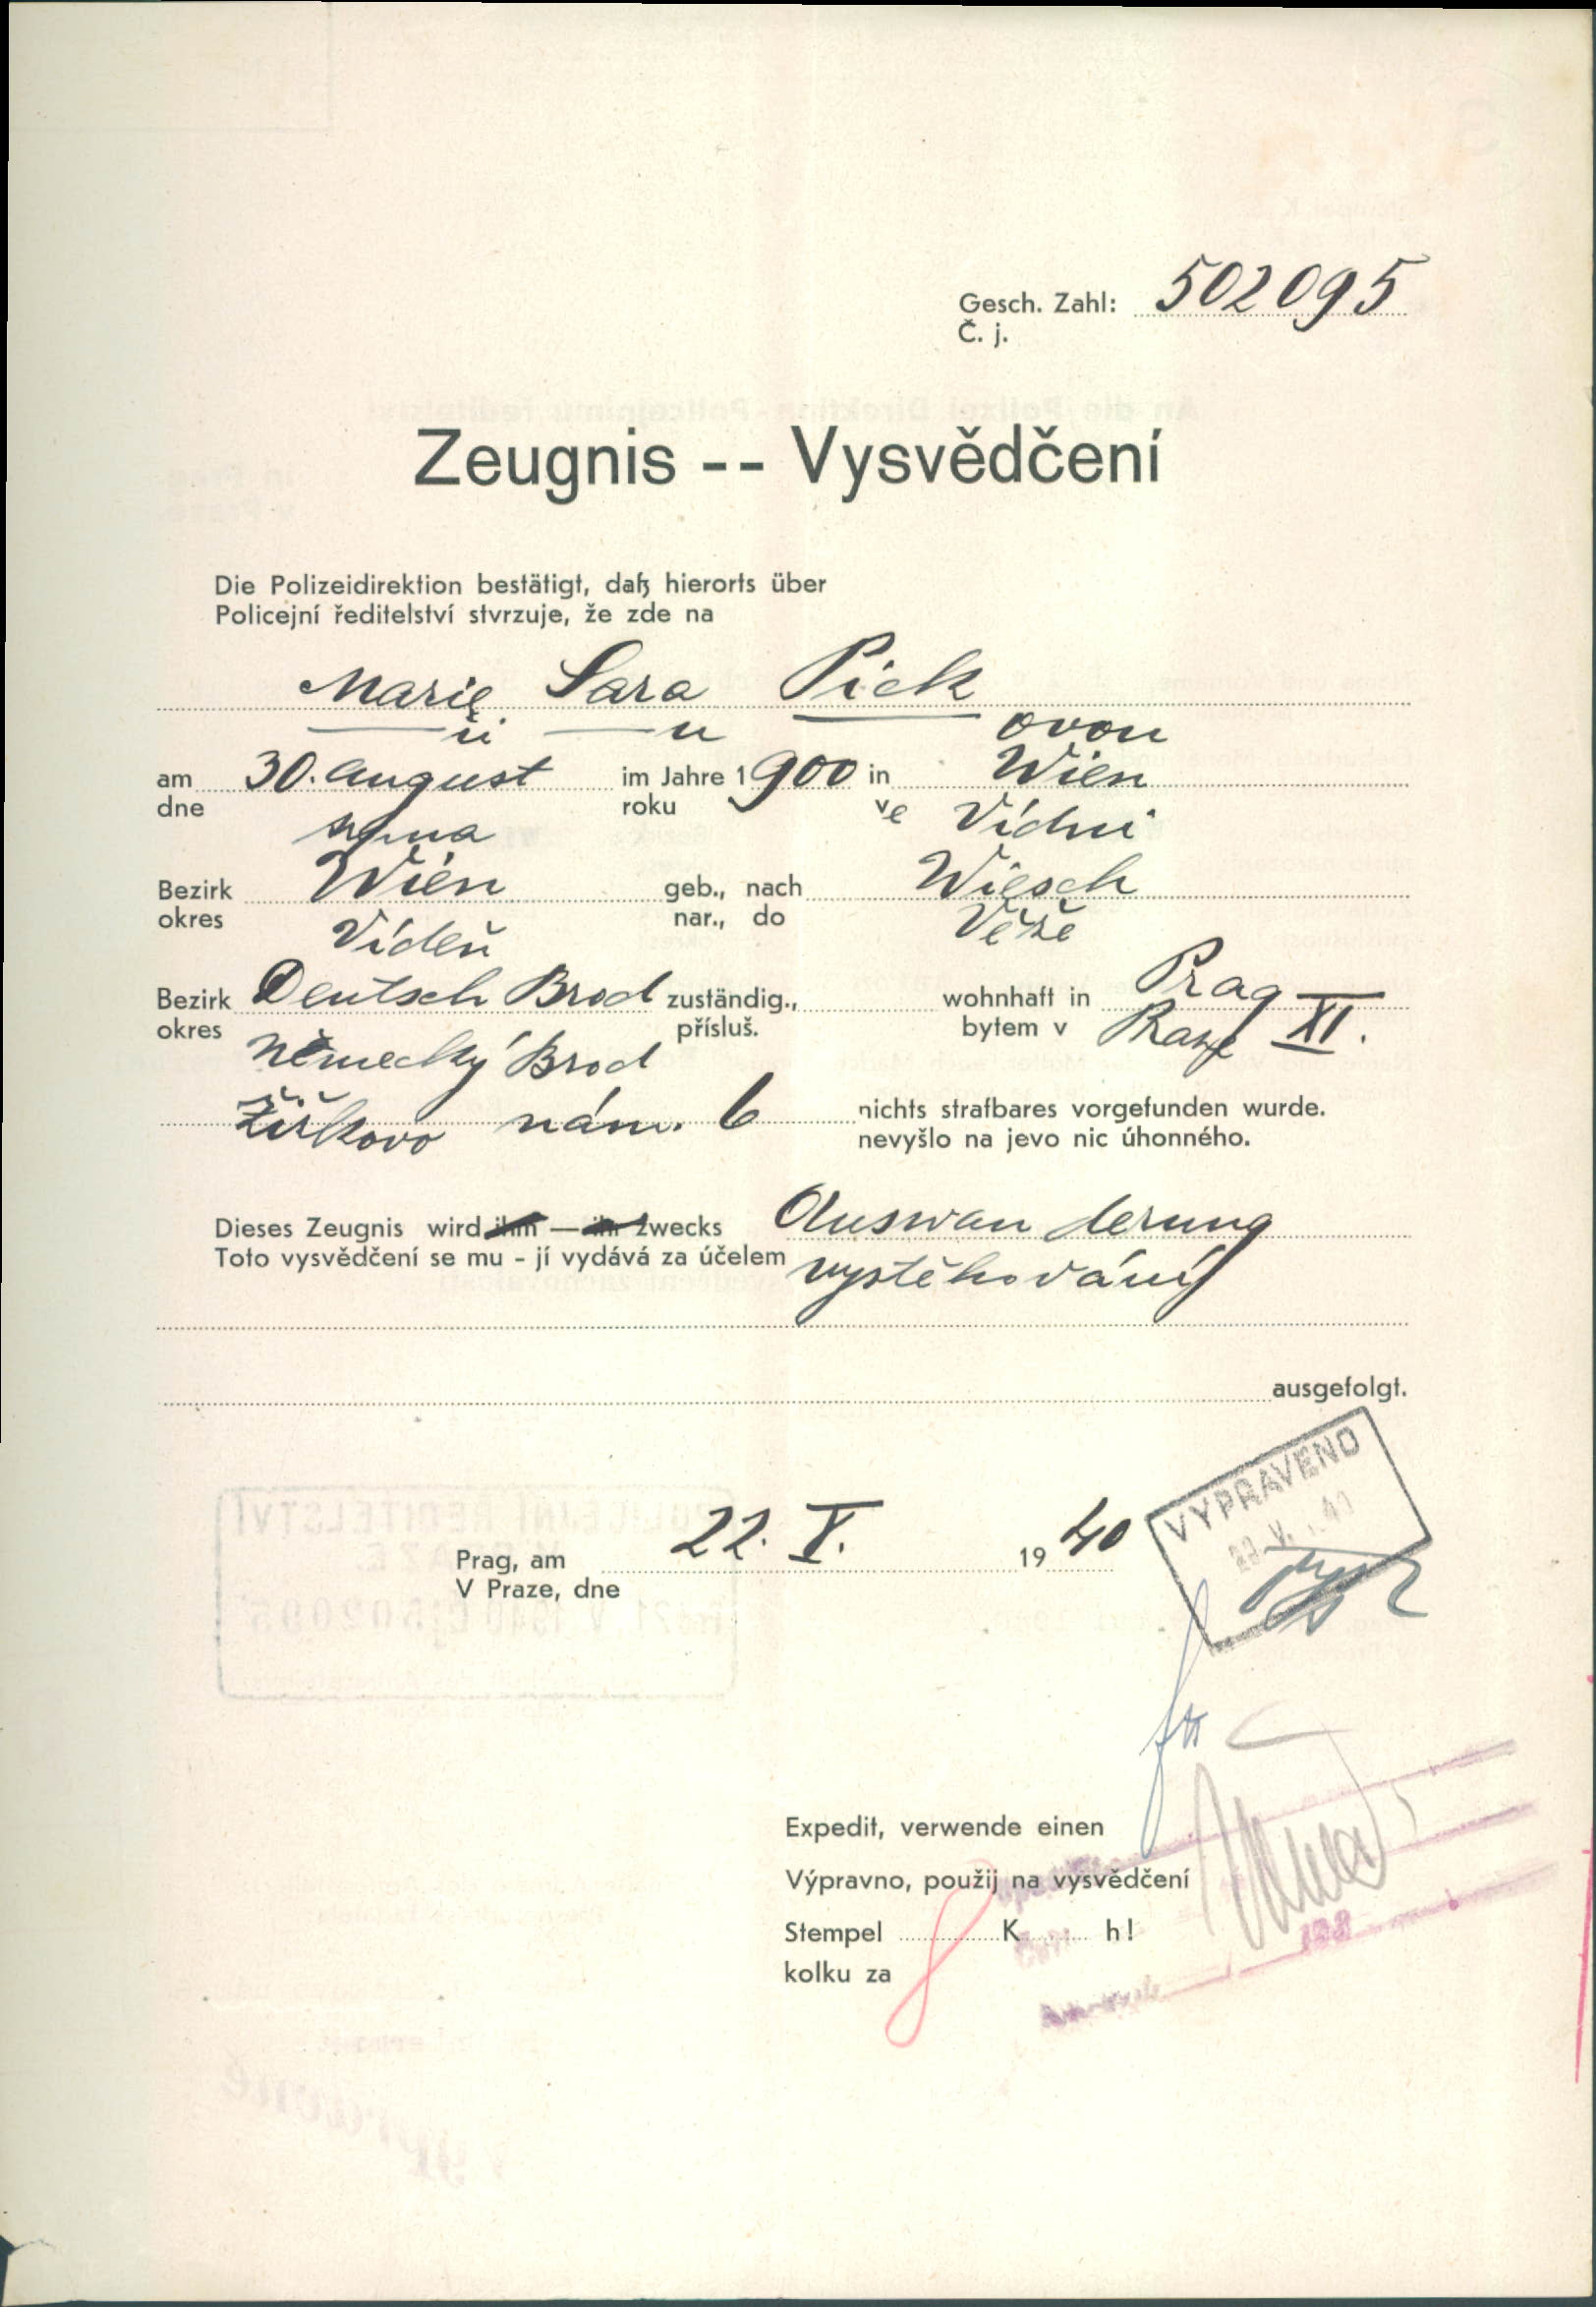 Gesch. Zahl: 502095
Č. j.
Zeugnis -- Vysvědčení
Die Polizeidirektion bestätigt, daß hierorts über
Policejní ředitelství stvrzuje, že zde na
Marie Sara Pick
ii u ovou
am 30. august im Jahre 1900 in Wien
dne srpna roku ve Vídni
Bezirk Wien geb., nach Wiesch
okres Vídeň nar., do Věže
Bezirk Deutsch Brod zuständig., wohnhaft in Prag XI.
okres Německý Brod přísluš. bytem v Praze
Žižkovo nám. 6 nichts strafbares vorgefunden wurde.
nevyšlo na jevo nic úhonného.
Dieses Zeugnis wird ihm — ihr zwecks Auswanderung
Toto vysvědčení se mu - jí vydává za účelem vystěhování
ausgefolgt.
VYPRAVENO
Prag, am 22. V. 1940
V Praze, dne
Expedit, verwende einen
Výpravno, použij na vysvědčení
Stempel K h!
kolku za